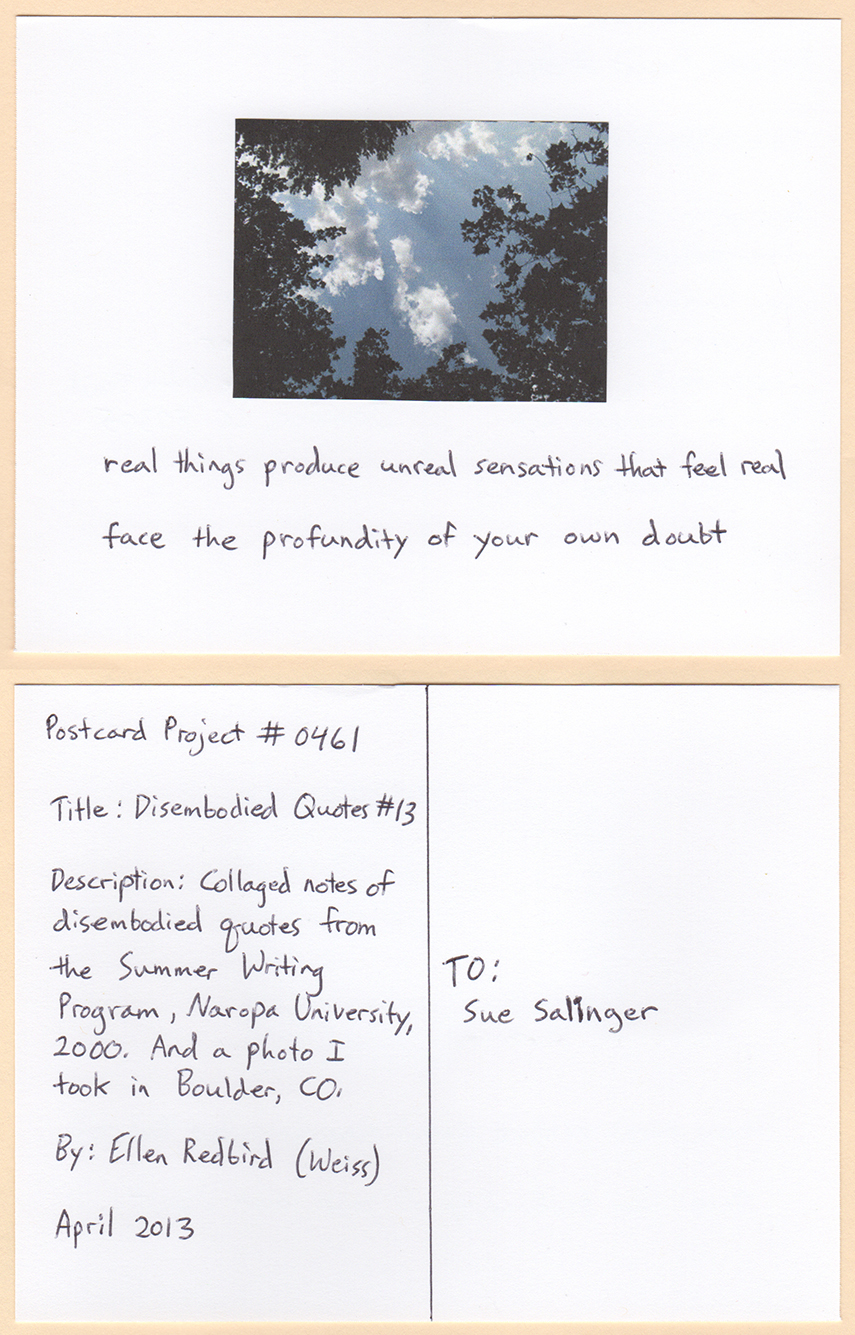 real things produce unreal sensations that feel real
face the profundity of your own doubt
Postcard Project # 0461
Title: Disembodied Quotes #13
Description: Collaged notes of
disembodied quotes from
the Summer Writing
Program, Naropa University,
2000. And a photo I
took in Boulder, CO.
By: Ellen Redbird (Weiss)
April 2013
TO:
Sue Salinger